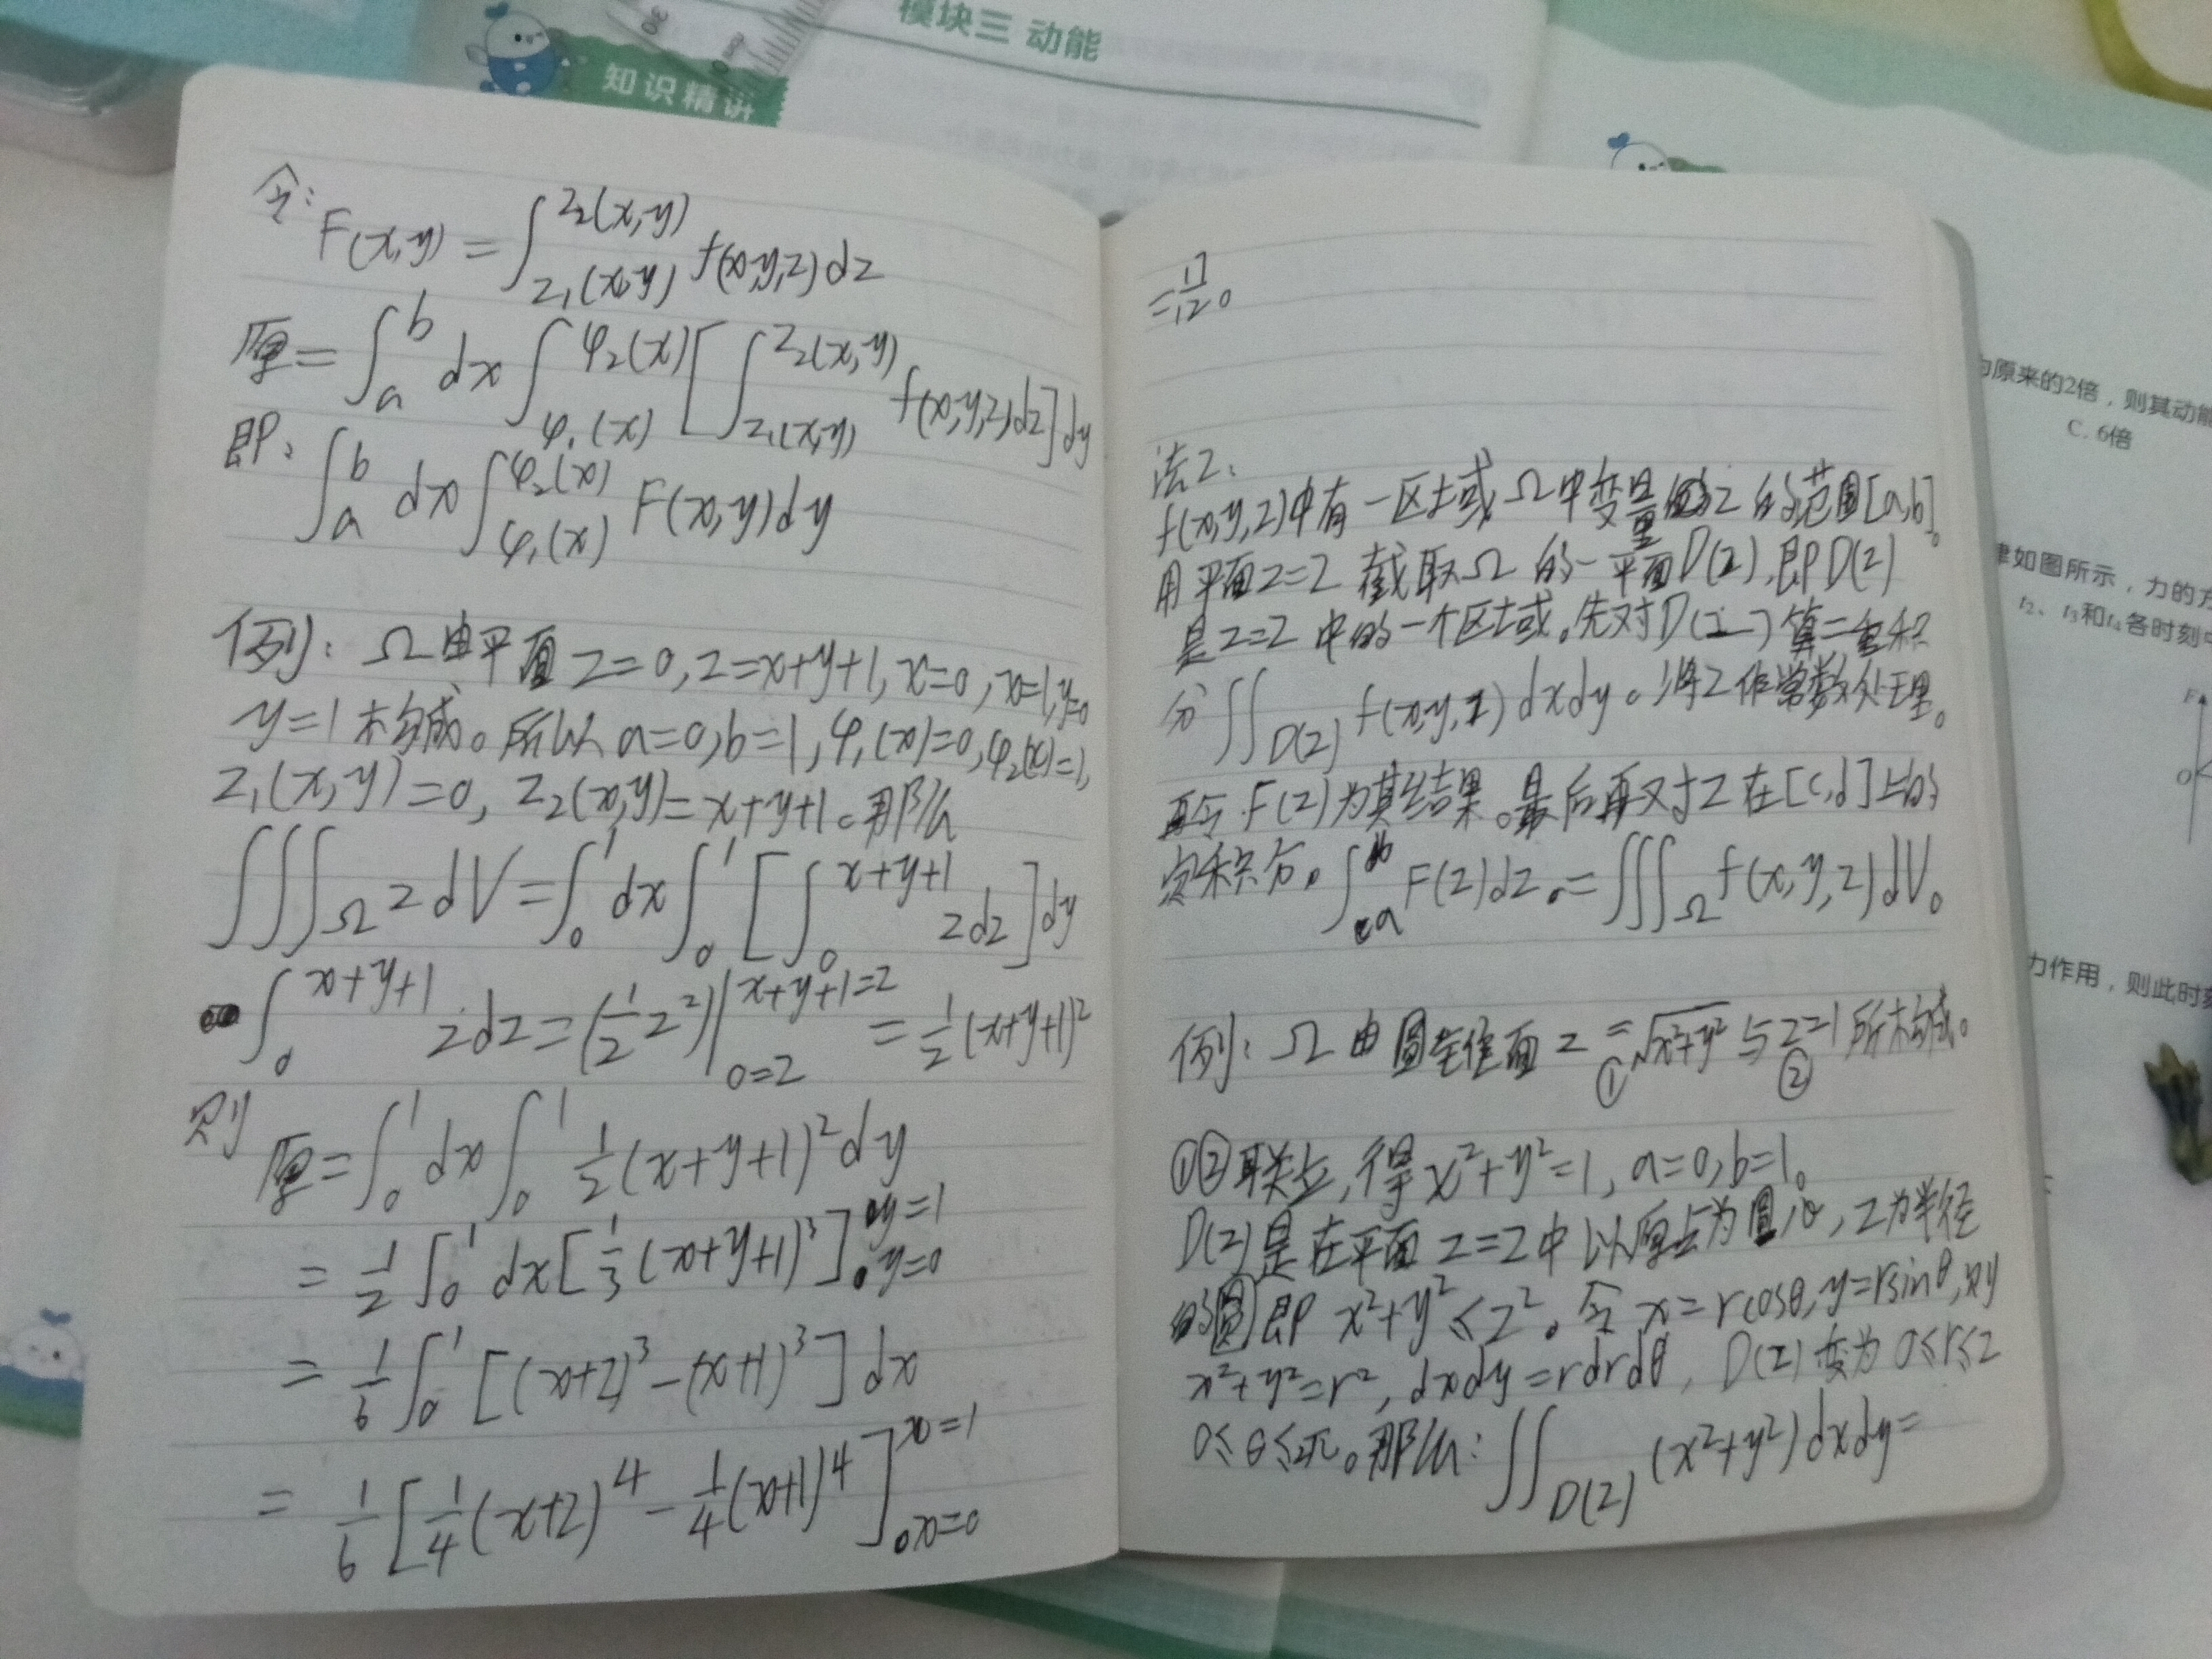 模块三 动能
知识精讲
令: F(x,y) = ∫_{z₁(x,y)}^{z₂(x,y)} f(x,y,z)dz
原 = ∫_a^b dx ∫_{φ₁(x)}^{φ₂(x)} [∫_{z₁(x,y)}^{z₂(x,y)} f(x,y,z)dz]dy
即: ∫_a^b dx ∫_{φ₁(x)}^{φ₂(x)} F(x,y)dy
例: Ω由平面 z=0, z=x+y+1, x=0, x=1, y=0
y=1构成。所以 a=0, b=1, φ₁(x)=0, φ₂(x)=1,
z₁(x,y)=0, z₂(x,y)=x+y+1。那么
∭_Ω z dV = ∫_0^1 dx ∫_0^1 [∫_0^{x+y+1} zdz]dy
∫_0^{x+y+1} zdz = (1/2 z²)|_{0=z}^{x+y+1=z} = 1/2 (x+y+1)²
则 原 = ∫_0^1 dx ∫_0^1 1/2 (x+y+1)² dy
= 1/2 ∫_0^1 dx [1/3 (x+y+1)³]_{y=0}^{y=1}
= 1/6 ∫_0^1 [(x+2)³-(x+1)³] dx
= 1/6 [1/4 (x+2)⁴ - 1/4 (x+1)⁴]_{x=0}^{x=1}
法2:
f(x,y,z)中有一区域Ω中变量z的范围[a,b]。
用平面z=z 截取Ω的一平面D(z),即D(z)
是z=z中的一个区域。先对D(z)算二重积
分 ∬_{D(z)} f(x,y,z) dxdy。将z作常数处理。
再令F(z)为其结果。最后再对z在[c,d]上的
定积分。∫_a^b F(z)dz = ∭_Ω f(x,y,z)dV。
例: Ω由圆锥面 z=√(x²+y²) ① 与z=1 ② 所构成。
①②联立,得 x²+y²=1, a=0, b=1。
D(z)是在平面z=z中以原点为圆心,z为半径
的圆即 x²+y²≤z²。令 x=rcosθ, y=rsinθ,则
x²+y²=r², dxdy=rdrdθ, D(z)变为 0≤r≤z
0≤θ≤2π。那么: ∬_{D(z)} (x²+y²)dxdy=
为原来的2倍，则其动能
C. 6倍
律如图所示，力的方
t₂、t₃和t₄各时刻中
F
O
力作用，则此时刻